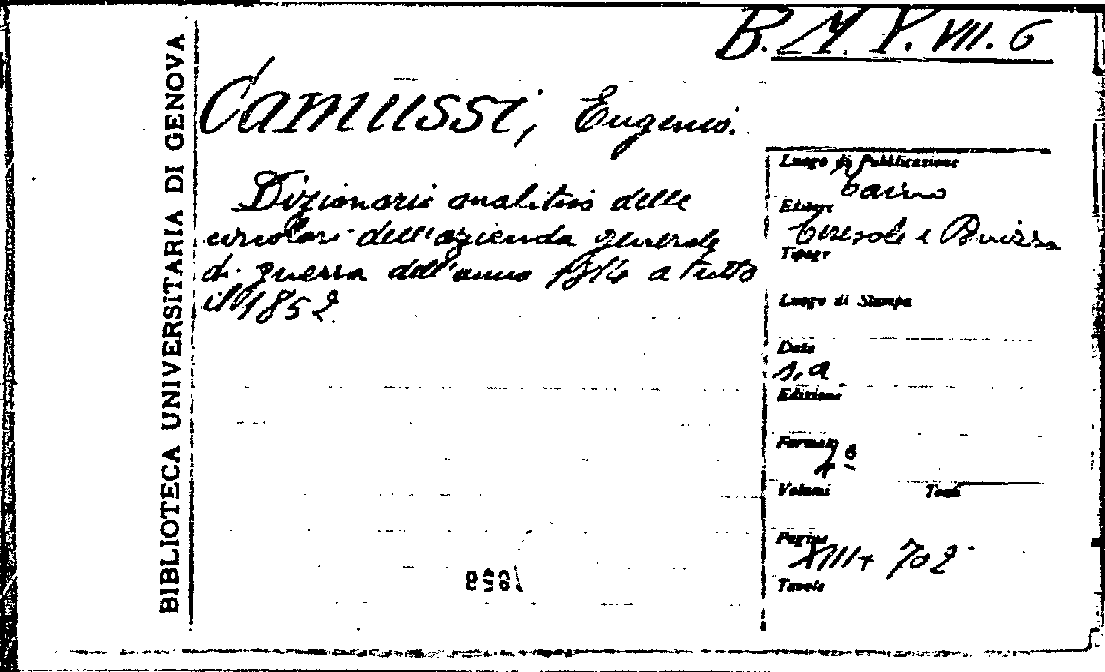 B. M. Y. VII. 6
BIBLIOTECA UNIVERSITARIA DI GENOVA
Camussi, Eugenio.
Dizionario analitico delle
circolari dell'azienda generale
di guerra dell'anno 1814 a tutto
il 1852
Luogo di Pubblicazione
Torino
Editore
Ceresole e Panizza
Tipogr
Luogo di Stampa
Data
s.a
Edizione
Formato
4°
Volumi Tomi
Pagine
XIII+ 702
Tavole